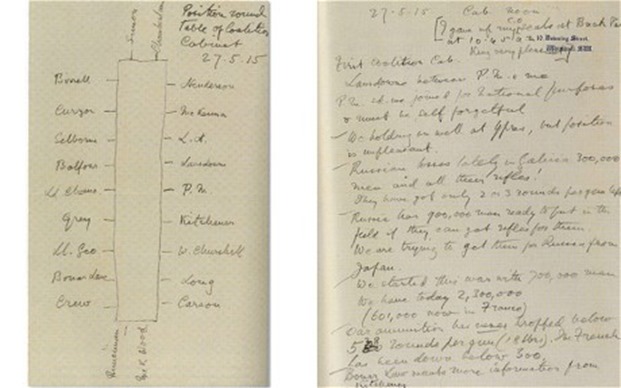 Position round
Table of Coalition
Cabinet
27.5.15
Simon
Chamberlain
Birrell
Curzon
Selborne
Balfour
Ld Chanc
Grey
Ll. Geo
Bonar Law
Crewe
Henderson
McKenna
L.H.
Lansdowne
P.M.
Kitchener
W. Churchill
Long
Carson
Runciman
McK Wood
27-5-15 Cab. noon
I gave up my seals at Buck Pal
at 10.45 a.
10, Downing Street,
Whitehall, S.W.
King very pleasant
First coalition Cab.
Lansdowne between P.M. & me
P.M. we joined for national purposes
& must be self forgetful
We holding on well at Ypres, but position
is unpleasant.
Russian losses lately in Galicia 300,000
men and all their rifles!
They have got only 2 or 3 rounds per gun left
Russia has 900,000 men ready to put in the
field if they can get rifles for them
We are trying to get them for Russia from
Japan.
We started this war with 700,000 men
We have today 2,300,000
(601,000 now in France)
Our ammunition has never dropped below
rounds per gun (18 lbs). The French
has been down below 300,
Bonar Law wants more information from
Kitchener